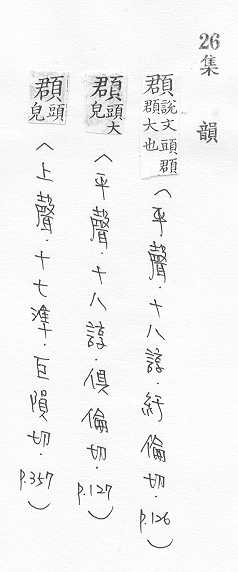 26 集韻
頵 說文頭頵頵大也（平聲．十八諄．紆倫切．p.126）
頵 頭大皃（平聲．十八諄．俱倫切．p.127）
頵 頭皃（上聲．十七準．巨隕切．p.357）